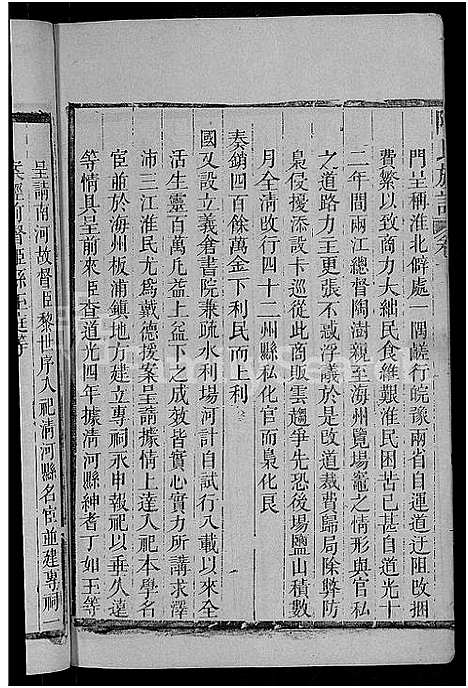 陶氏族譜 卷
門呈稱淮北僻處一隅鹺行皖豫兩省自運道迂阻改捆
費繁以致商力大絀民食維艱淮民困苦已甚自道光十
二年間兩江總督陶澍親至海州覽場竈之情形與官私
之道路力主更張不惑浮議於是改道裁費歸局除弊防
梟侵擾添設卡巡從此商販雲趨爭先恐後場鹽山積數
月全清收四十二州縣私化官而梟化良
奏銷四百餘萬金下利民而上利
國又設立義倉書院兼疏水利場河計自試行八載以來全
活生靈百萬凡益上益下之成效皆實心實力所講求澤
沛三江淮民尤爲戴德援案呈請據情上達入祀本學名
宦並於海州板浦鎮地方建立專祠永申報祀以垂久遠
等情具呈前來臣查道光四年據清河縣紳耆丁如玉等
呈請南河故督臣黎世序入祀清河縣名宦並建專祠一
案經前督臣孫玉庭等